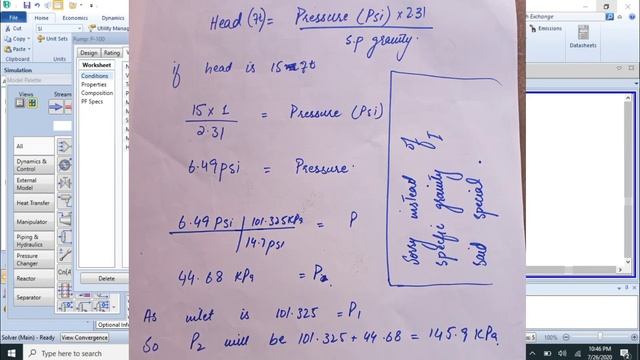 Head (ft) = Pressure (Psi) × 2.31
s.p gravity.
if head is 15 ft
15 × 1
2.31
= Pressure (Psi)
6.49 psi = Pressure.
6.49 Psi | 101.325 KPa = P
14.7 psi
44.68 KPa = P2.
As inlet is 101.325 = P1
So P2 will be 101.325 + 44.68 = 145.9 KPa.
Sorry instead of
specific gravity I
said special.
SI
Utility Manager
Unit Sets
Simulation
Model Palette
Views
Stream
All
Dynamics & Control
External Model
Heat Transfer
Manipulator
Piping & Hydraulics
Pressure Changer
Reactor
Separator
Pump: P-100
Design
Rating
Worksheet
Worksheet
Conditions
Properties
Composition
PF Specs
Delete
Optional Info
Exchange
Emissions
Datasheets
Solver (Main) - Ready
View Convergence
100%
Type here to search
10:46 PM
7/26/2020